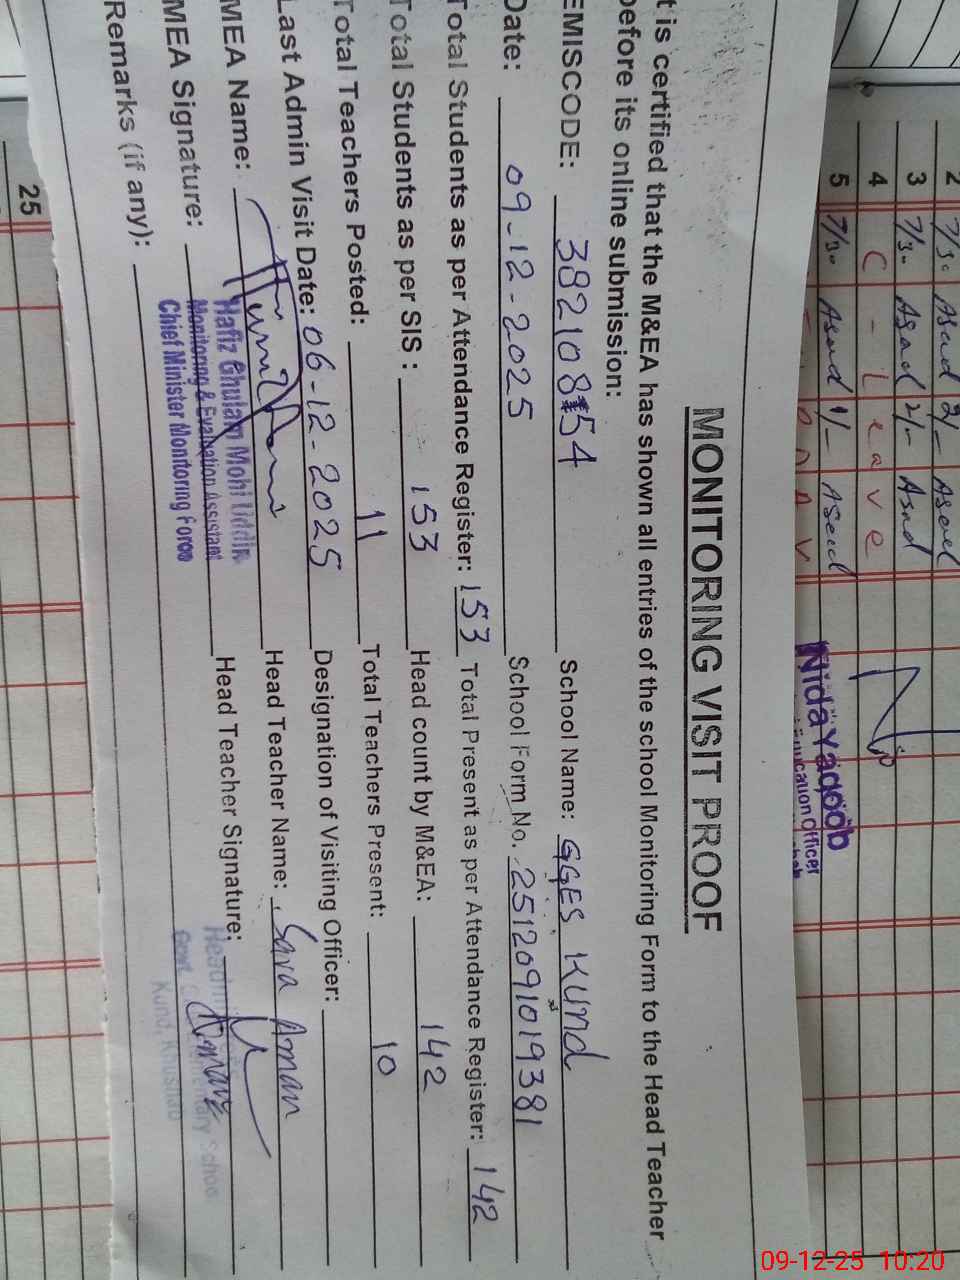 MONITORING VISIT PROOF
t is certified that the M&EA has shown all entries of the school Monitoring Form to the Head Teacher
before its online submission:
EMISCODE: 38210854 School Name: GGES Kund
Date: 09-12-2025 School Form No. 2512091019381
Total Students as per Attendance Register: 153 Total Present as per Attendance Register: 142
Total Students as per SIS : 153 Head count by M&EA: 142
Total Teachers Posted: 11 Total Teachers Present: 10
Last Admin Visit Date: 06-12-2025 Designation of Visiting Officer:
MEA Name: Head Teacher Name: Sara Aman
MEA Signature: Head Teacher Signature:
Hafiz Ghulam Mohi Uddin
Monitoring & Evaluation Assistant
Chief Minister Monitoring Force
Kund, Khushab
Remarks (if any):
2
3
4 C - Leave
5
Nida Yaqoob
Education Officer
25
09-12-25 10:20